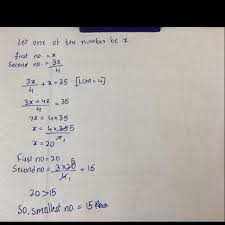 Let one of the number be x
first no. = x
Second no. = 3x/4
3x/4 + x = 35 [LCM = 4]
3x + 4x/4 = 35
7x = 4 × 35
x = 4 × 35 5
x = 20 1
First no = 20 5
Second no = 3 × 20/4 1 = 15
20 > 15
So, smallest no = 15